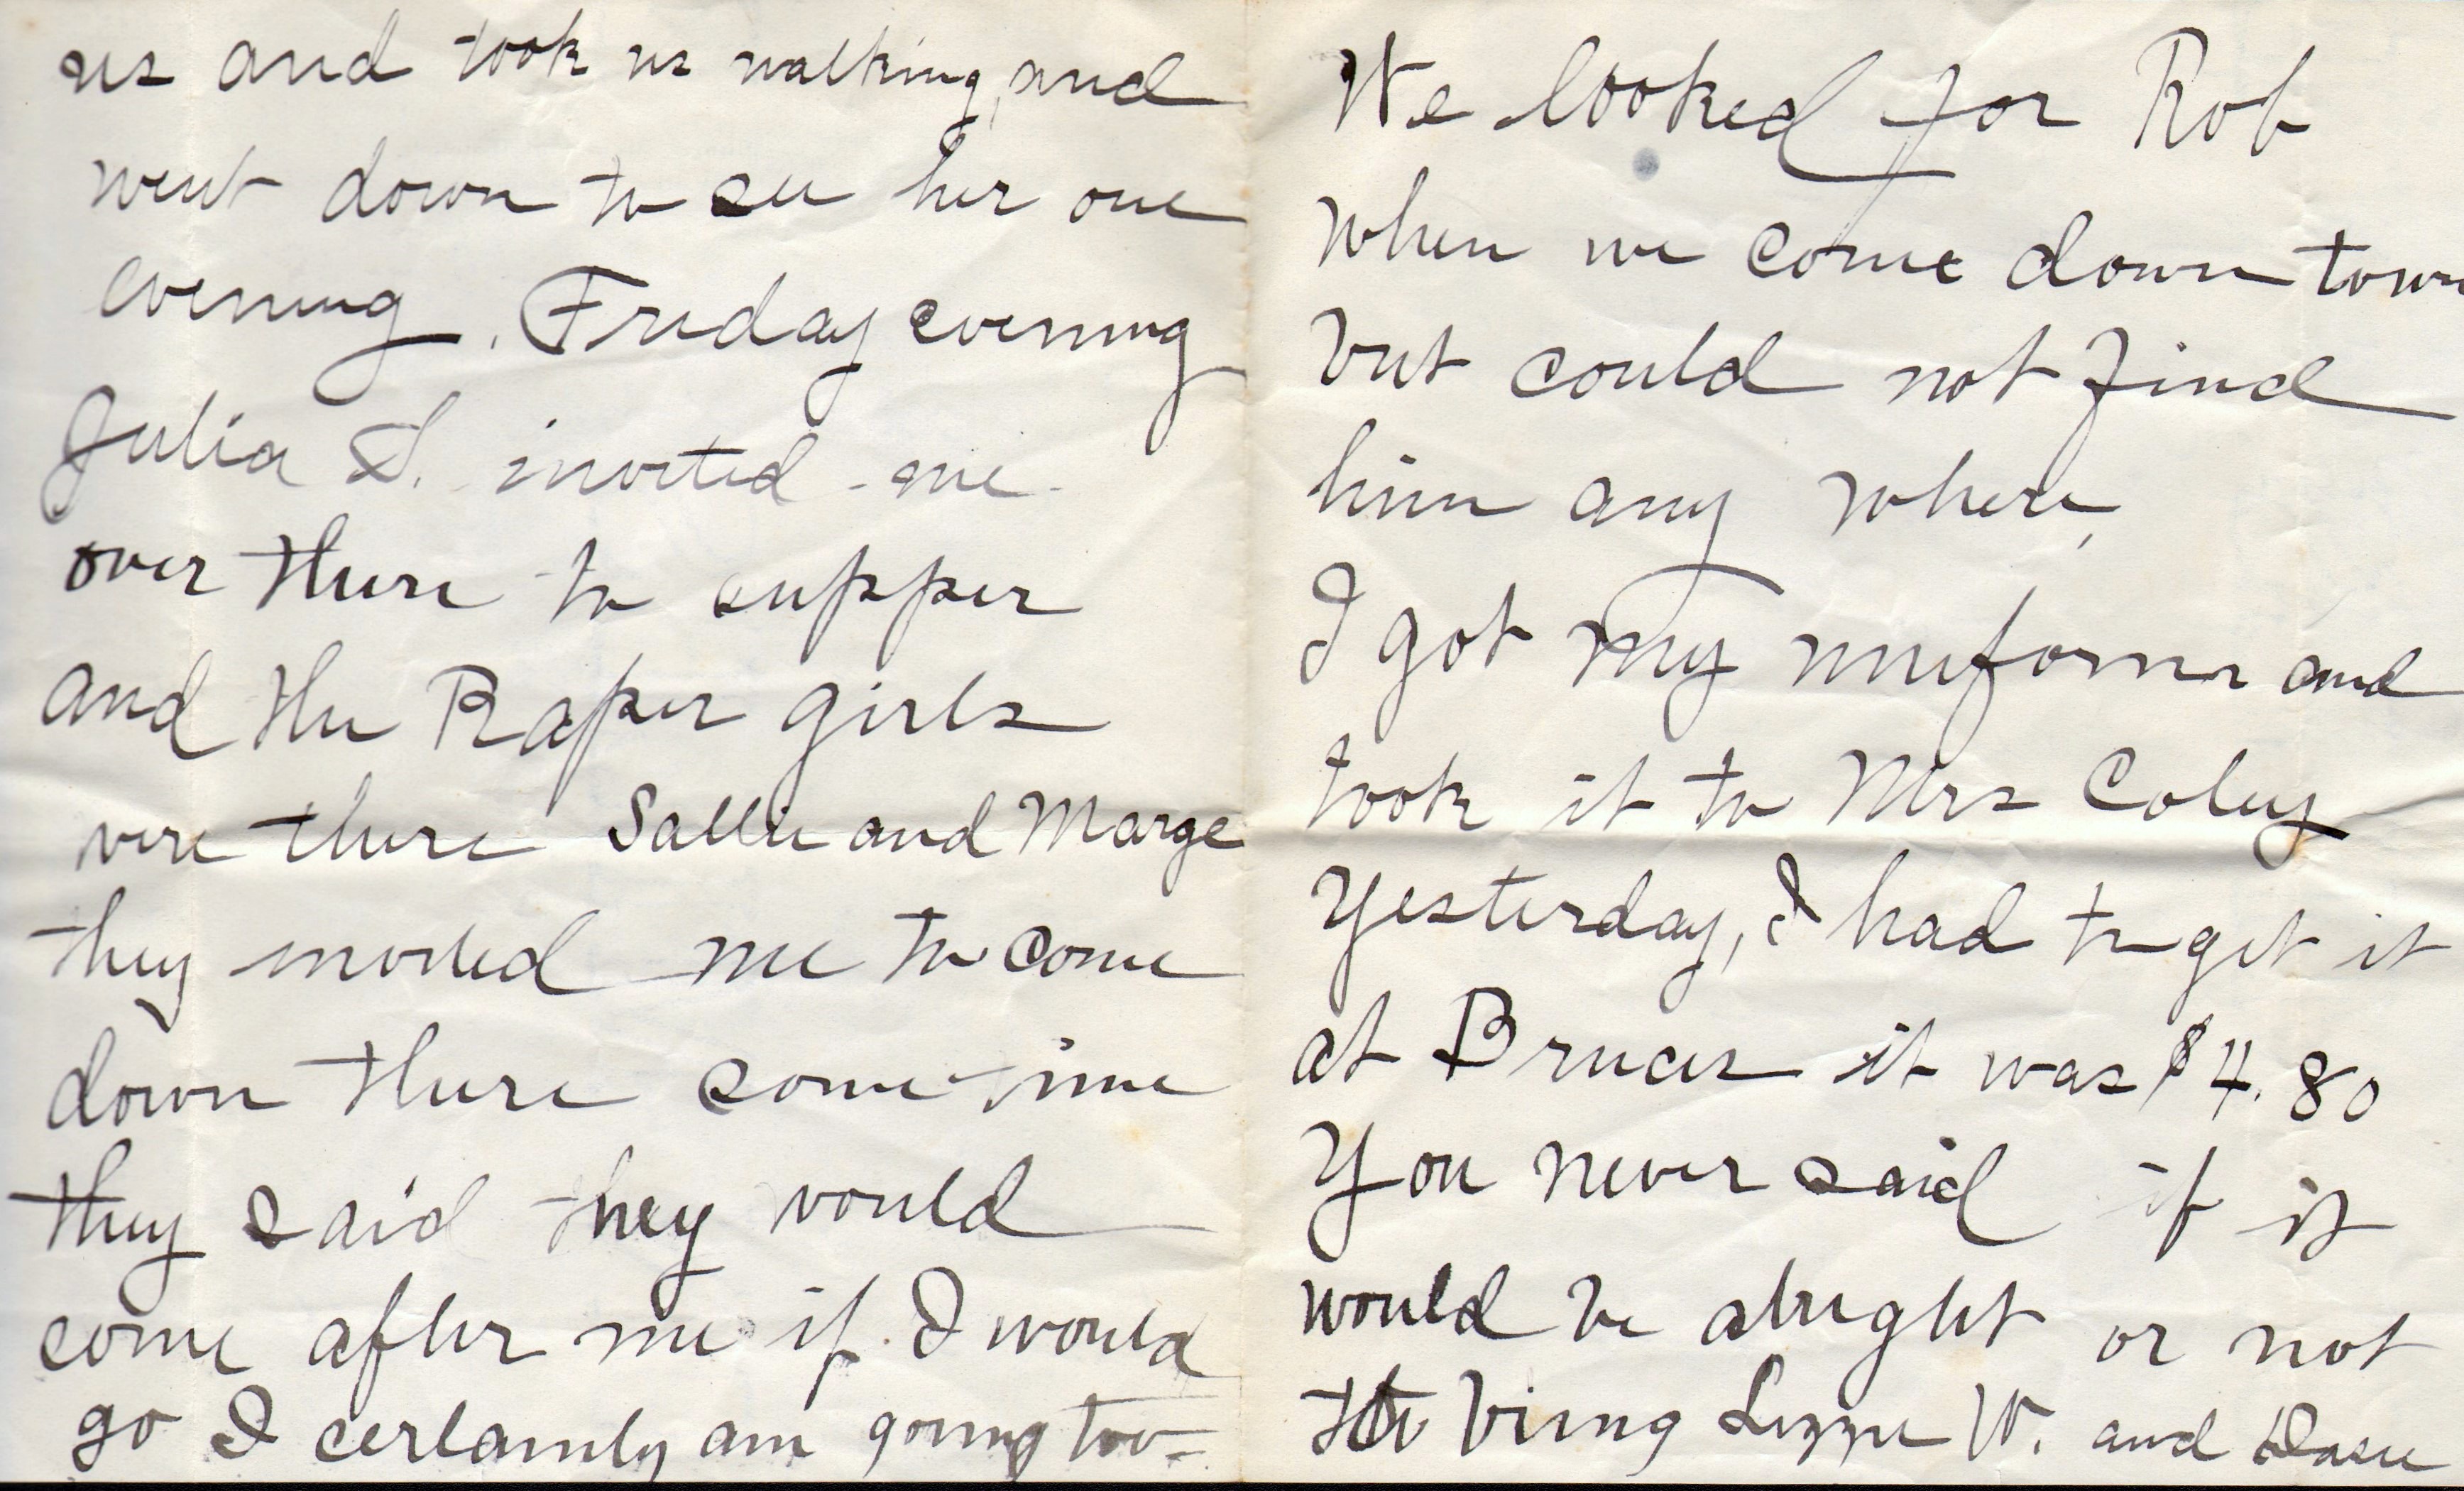 us and took us walking, and
went down to see her one
evening. Friday evening
Julia S. invited me
over there to supper
and the Raper girls
were there Sallie and Marge
they invited me to come
down there some time
they said they would
come after me if I would
go I certainly am going too
We looked for Rob
when we come down town
but could not find
him any where,
I got my uniform and
took it to Mrs Coley
Yesterday, I had to get it
at Bruces it was $4.80
You never said if it
would be alright or not
to bring Lizzie W. and